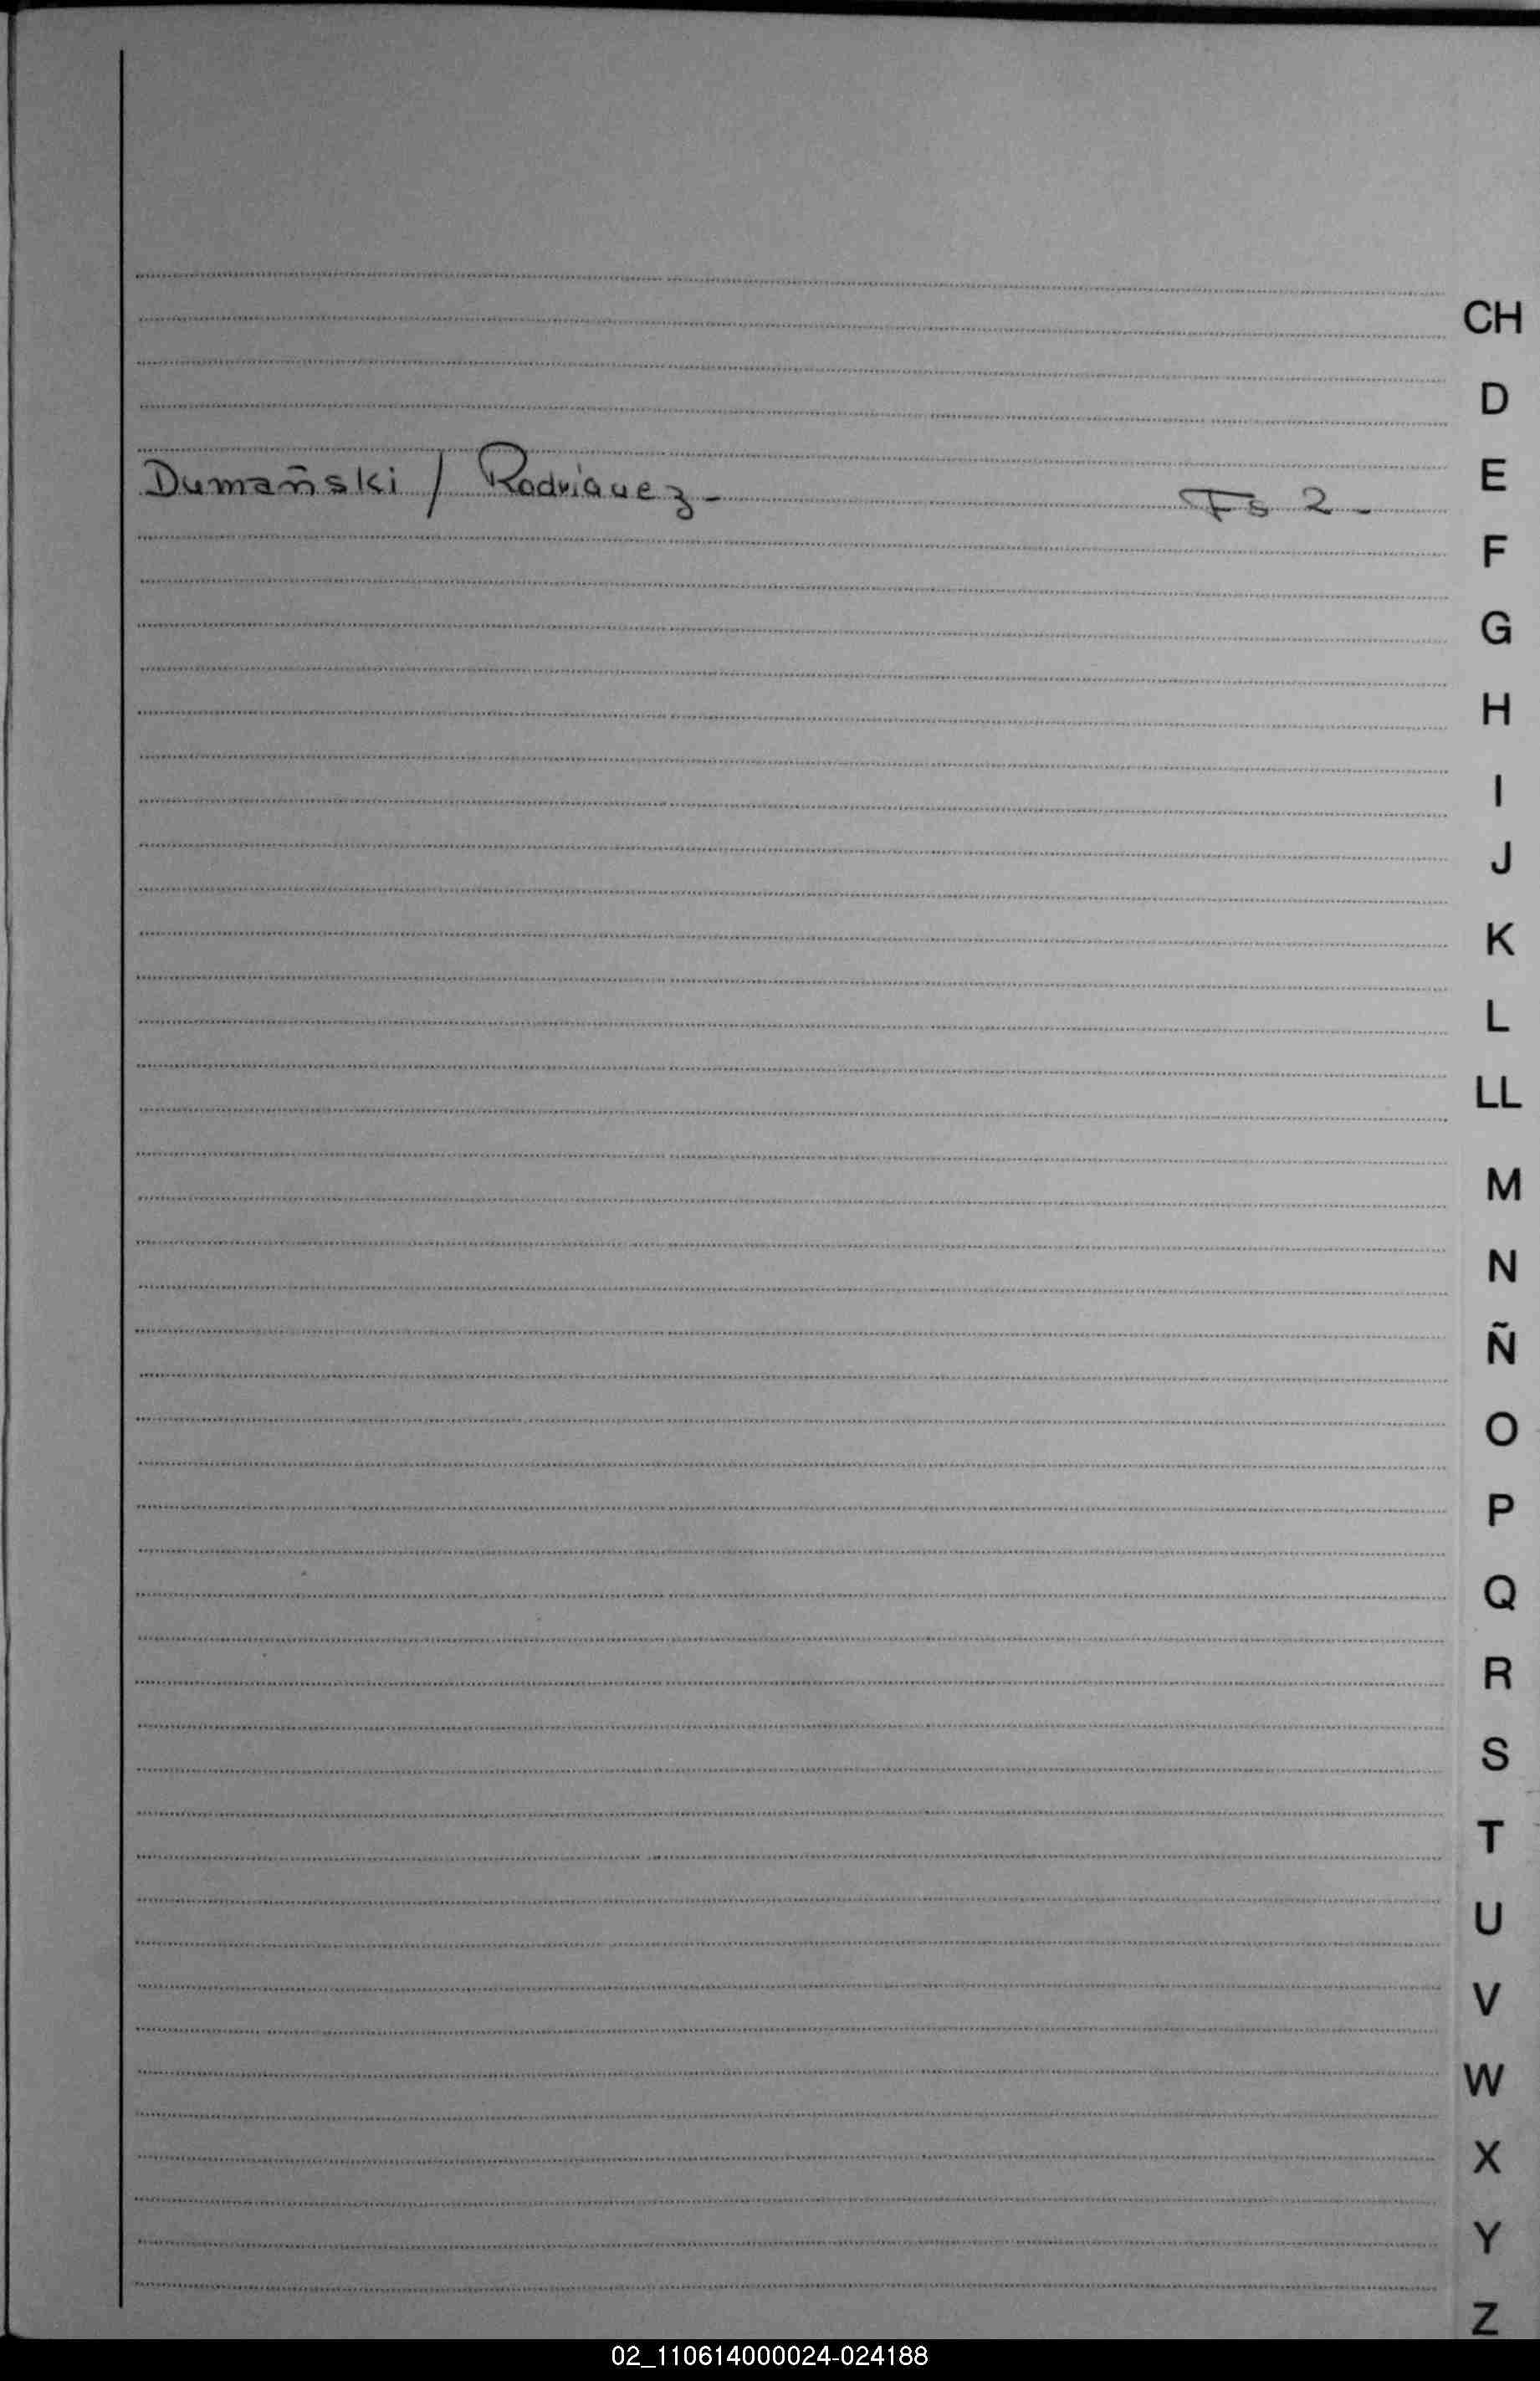 CH
D
Dumañski / Rodriguez - Fs 2 -
E
F
G
H
I
J
K
L
LL
M
N
Ñ
O
P
Q
R
S
T
U
V
W
X
Y
Z
02_110614000024-024188